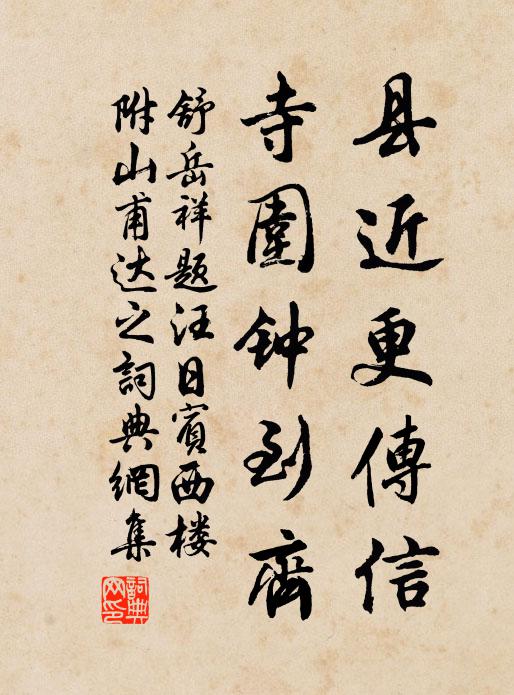 县近更傳信
寺圍钟到齊
舒岳祥题汪日賓西楼
附山甫达之詞典網集
詞典网印